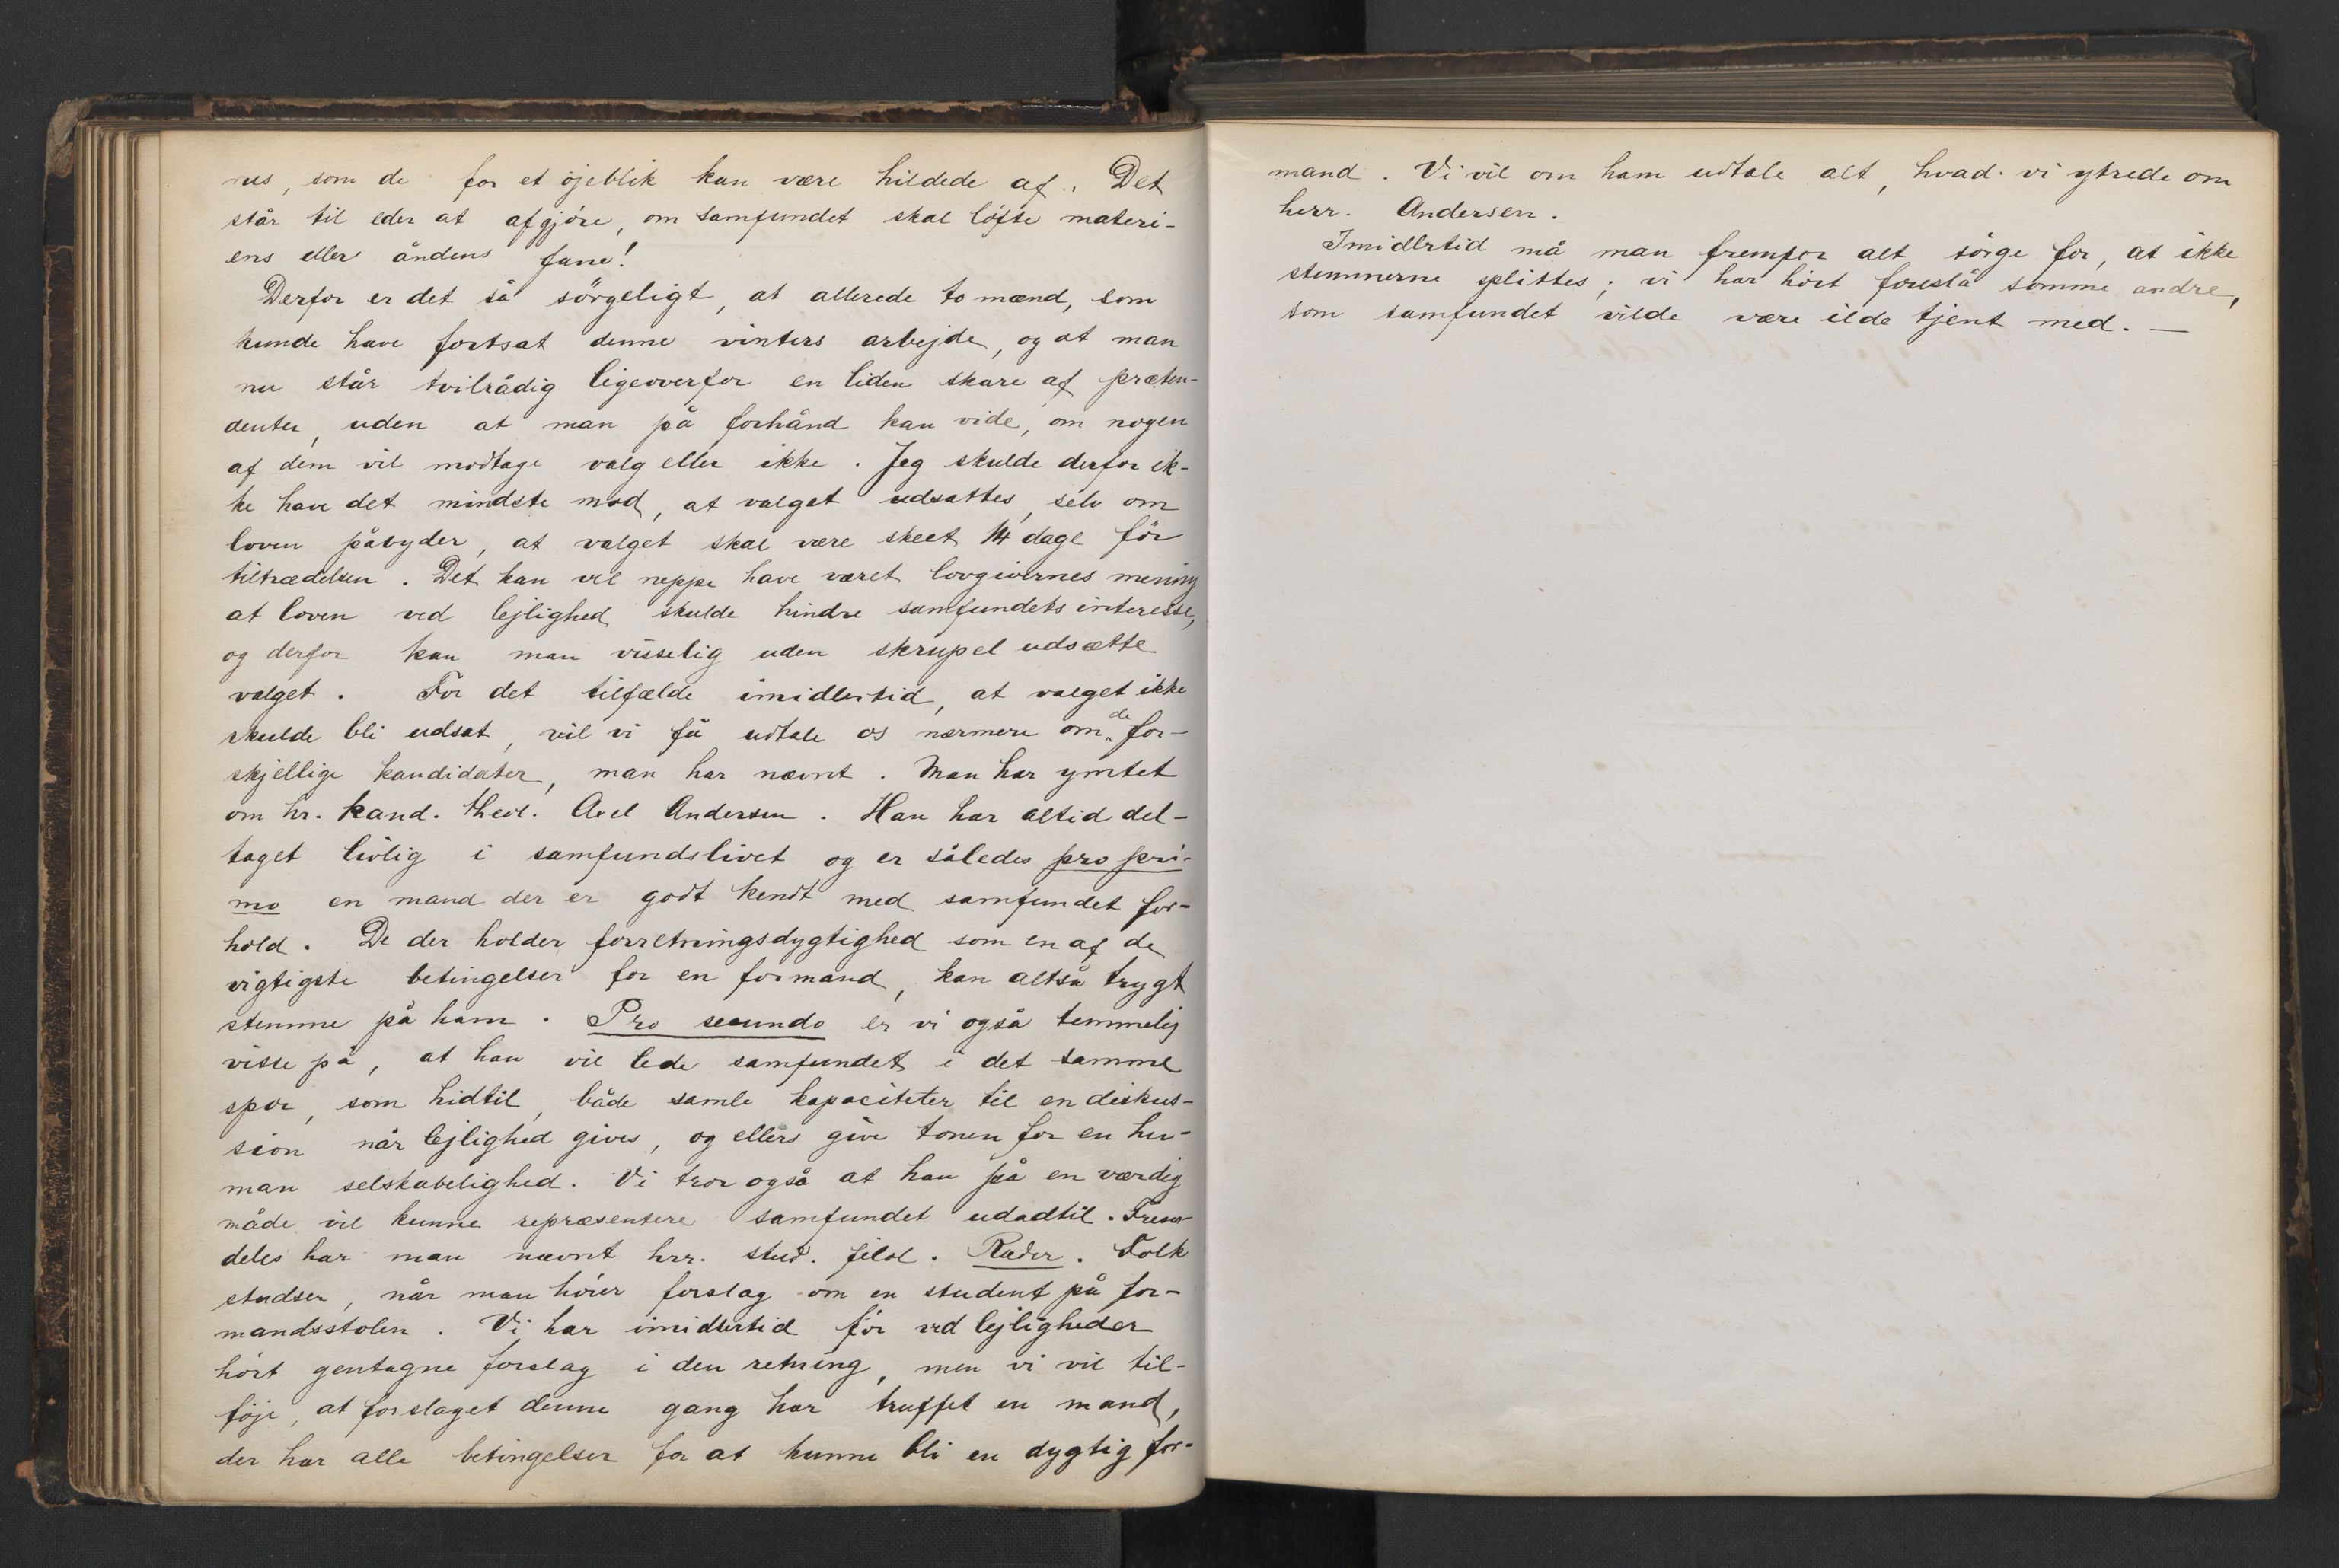 rus, som de for et öjeblik kan være hildede af. Det
står til eder at afgjöre, om samfundet skal löfte materi-
ens eller åndens fane!
Derfor er det så sörgeligt, at allerede to mænd, som
kunde have fortsat denne vinters arbejde, og at man
nu står tvilrådig ligeoverfor en liden skare af præten-
denter, uden at man på forhånd kan vide, om nogen
af dem vil modtage valg eller ikke. Jeg skulde derfor ik-
ke have det mindste mod, at valget udsattes, selv om
loven påbyder, at valget skal være skeet 14 dage för
tiltrædelsen. Det kan vel neppe have været lovgivernes mening
at loven ved lejlighed skulde hindre samfundets interesse,
og derfor kan man visselig uden skrupel udsætte
valget. For det tilfælde imidlertid, at valget ikke
skulde bli udsat, vil vi få udtale os nærmere om de for-
skjellige kandidater, man har nævnt. Man har ymtet
om hr. kand. theol. Axel Andersen. Han har altid del-
taget livlig i samfundslivet og er således pro pri-
mo en mand der er godt kendt med samfundet for-
hold. De der holder forretningsdygtighed som en af de
vigtigste betingelser for en formand, kan altså trygt
stemme på ham. Pro secundo er vi også temmelig
visse på, at han vil lede samfundet i det samme
spor, som hidtil, både samle kapaciteter til en diskus-
sion når lejlighed gives, og ellers give tonen for en hu-
man selskabelighed. Vi tror også at han på en værdig
måde vil kunne repræsentere samfundet udadtil. Frem-
deles har man nævnt hrr. stud. filol. Ræder. Folk
studser, når man hörer forslag om en student på for-
mandsstolen. Vi har imidlertid för ved lejligheder
hört gentagne forslag i den retning, men vi vil til-
föje, at forslaget denne gang har truffet en mand,
der har alle betingelser for at kunne bli en dygtig for-
mand. Vi vil om ham udtale alt, hvad vi ytrede om
herr. Andersen.
Imidlrtid må man fremfor alt sörge for, at ikke
stemmerne splittes; vi har hört foreslå somme andre,
som samfundet vilde være ilde tjent med. —